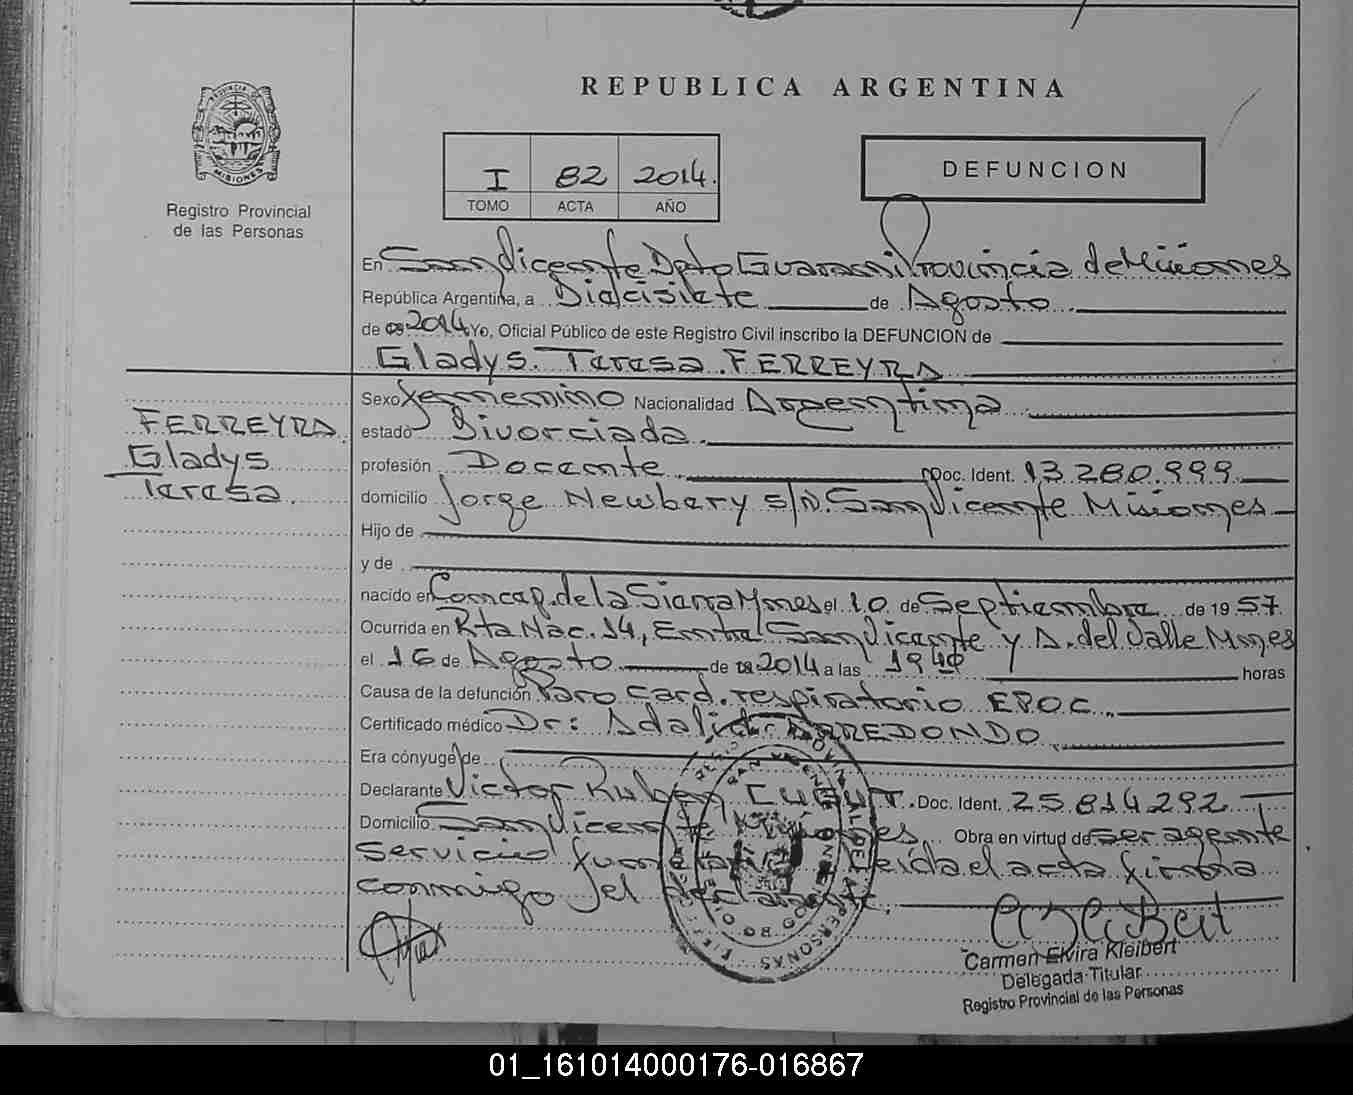 REPUBLICA ARGENTINA
I 82 2014.
TOMO ACTA AÑO
DEFUNCION
PROVINCIA DE
MISIONES
Registro Provincial
de las Personas
En San Vicente Dpto Guarani Provincia de Misiones
República Argentina, a Diecisiete de Agosto
de 2014 Yo, Oficial Público de este Registro Civil inscribo la DEFUNCION de
Gladys Teresa FERREYRA
FERREYRA
Gladys
Teresa
Sexo Femenino Nacionalidad Argentina
estado Divorciada
profesión Docente Doc. Ident. 13.280.999
domicilio Jorge Newbery s/N. San Vicente Misiones
Hijo de
y de
nacido en Concep. de la Sierra Mnes el 10 de Septiembre de 1957
Ocurrida en Rta Nac. 14, Entre San Vicente y A. del Valle Mnes
el 16 de Agosto de 2014 a las 19 horas
Causa de la defunción Paro card. respiratorio EPOC
Certificado médico Dr: Adalid ARREDONDO
Era cónyuge de
Declarante Victor Ruben Doc. Ident. 25.814.292
Domicilio San Vicente Misiones Obra en virtud de ser agente
servicio Leida el acta firma
conmigo el declarante
Carmen Elvira Kleibert
Delegada Titular
Registro Provincial de las Personas
01_161014000176-016867